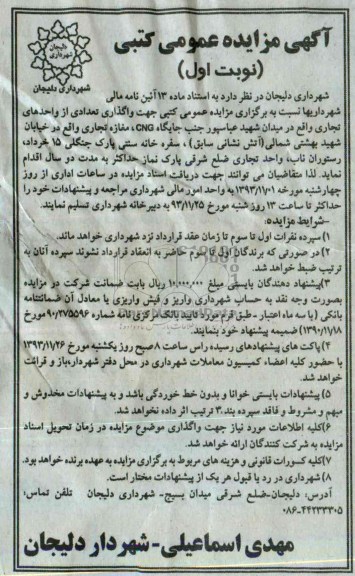 آگهی مزایده عمومی کتبی
(نوبت اول)
دلیجان
شهرداری
شهرداری دلیجان
شهرداری دلیجان در نظر دارد به استناد ماده ۱۳ آئین نامه مالی
شهرداریها نسبت به برگزاری مزایده عمومی کتبی جهت واگذاری تعدادی از واحدهای
تجاری واقع در میدان شهید عباسپور جنب جایگاه CNG، مغازه تجاری واقع در خیابان
شهید بهشتی شمالی (آتش نشانی سابق)، سفره خانه سنتی پارک جنگلی ۱۵ خرداد،
رستوران ناب، واحد تجاری ضلع شرقی پارک نماز حداکثر به مدت دو سال اقدام
نماید. لذا متقاضیان می توانند جهت دریافت اسناد مزایده در ساعات اداری از روز
چهارشنبه مورخه ۱۳۹۳/۱۱/۰۱ به واحد امور مالی شهرداری مراجعه و پیشنهادات خود را
حداکثر تا ساعت ۱۳ روز شنبه مورخ ۹۳/۱۱/۲۵ به دبیرخانه شهرداری تسلیم نمایند.
-شرایط مزایده:
۱) سپرده نفرات اول تا سوم تا زمان عقد قرارداد نزد شهرداری خواهد ماند.
۲) در صورتی که برندگان اول تا سوم حاضر به انعقاد قرارداد نشوند سپرده آنان به
ترتیب ضبط خواهد شد.
۳) پیشنهاد دهندگان بایستی مبلغ ۱۰,۰۰۰,۰۰۰ ریال بابت ضمانت شرکت در مزایده
بصورت وجه نقد به حساب شهرداری واریز و فیش واریزی یا معادل آن ضمانتنامه
بانکی (با سه ماه اعتبار - طبق فرم مورد تایید بانک مرکزی نامه شماره ۹۰/۲۷۵۵۹۶ مورخ
۱۳۹۰/۱۱/۱۸) ضمیمه پیشنهاد خود بنمایند.
۴) پاکت های پیشنهادهای رسیده راس ساعت ۸ صبح روز یکشنبه مورخ ۱۳۹۳/۱۱/۲۶
با حضور کلیه اعضاء کمیسیون معاملات شهرداری در محل دفتر شهردار باز و قرائت
خواهد شد.
۵) پیشنهادات بایستی خوانا و بدون خط خوردگی باشد و به پیشنهادات مخدوش و
مبهم و مشروط و فاقد سپرده بند ۳ ترتیب اثر داده نخواهد شد.
۶) کلیه اطلاعات مورد نیاز جهت واگذاری موضوع مزایده در زمان تحویل اسناد
مزایده به شرکت کنندگان ارائه خواهد شد.
۷) کلیه کسورات قانونی و هزینه های مربوط به برگزاری مزایده به عهده برنده خواهد بود.
۸) شهرداری در رد یا قبول هر یک از پیشنهادات مختار است.
آدرس: دلیجان-ضلع شرقی میدان بسیج- شهرداری دلیجان تلفن تماس:
۰۸۶-۴۴۲۳۳۳۰۵
مهدی اسماعیلی- شهردار دلیجان